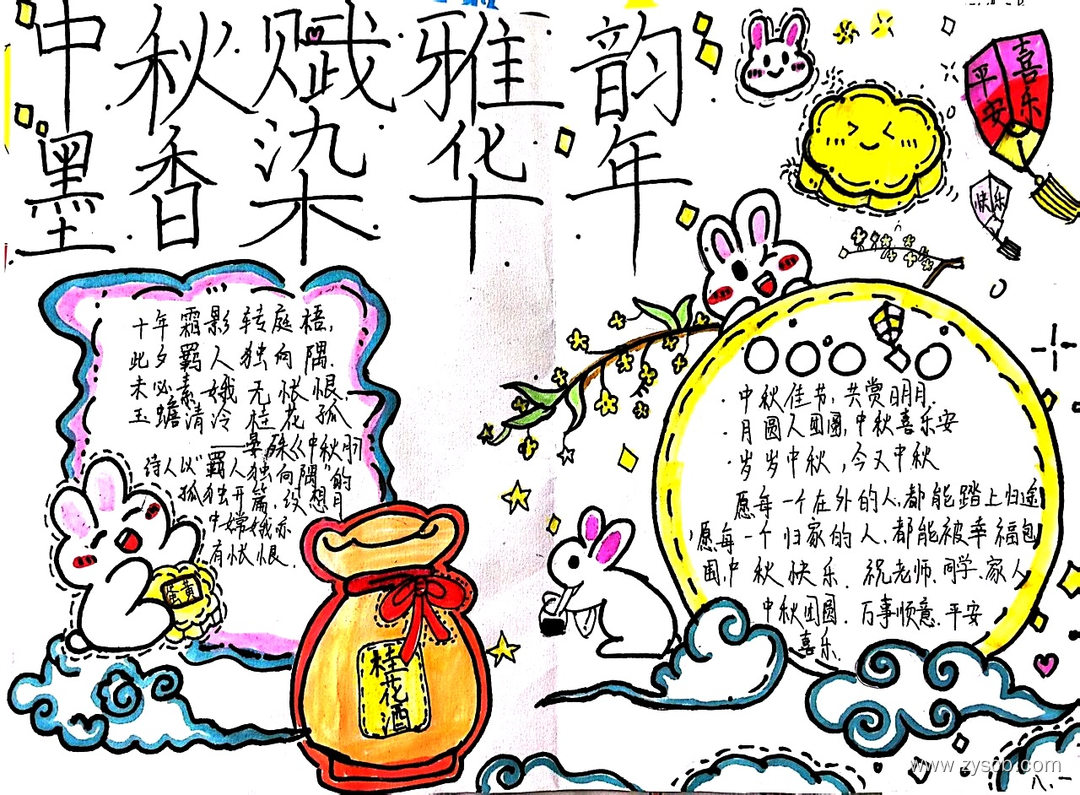 中秋赋雅韵
墨香染华年
喜乐
平安
快乐
十年霜影转庭梧,
此夕羁人独向隅.
未必素娥无怅恨.
玉蟾清冷桂花孤
——晏殊《中秋月
诗人以"羁人独向隅"的
孤独开篇,纹想月
中嫦娥亦
有怅恨.
蛋黄
桂花酒
·中秋佳节,共赏明月.
·月圆人团圆,中秋喜乐安
·岁岁中秋,今又中秋
愿每一个在外的人,都能踏上归途
愿每一个归家的人.都能被幸福包
围,中秋快乐.祝老师.同学.家人
中秋团圆.万事顺意.平安
喜乐.
www.zys80.com